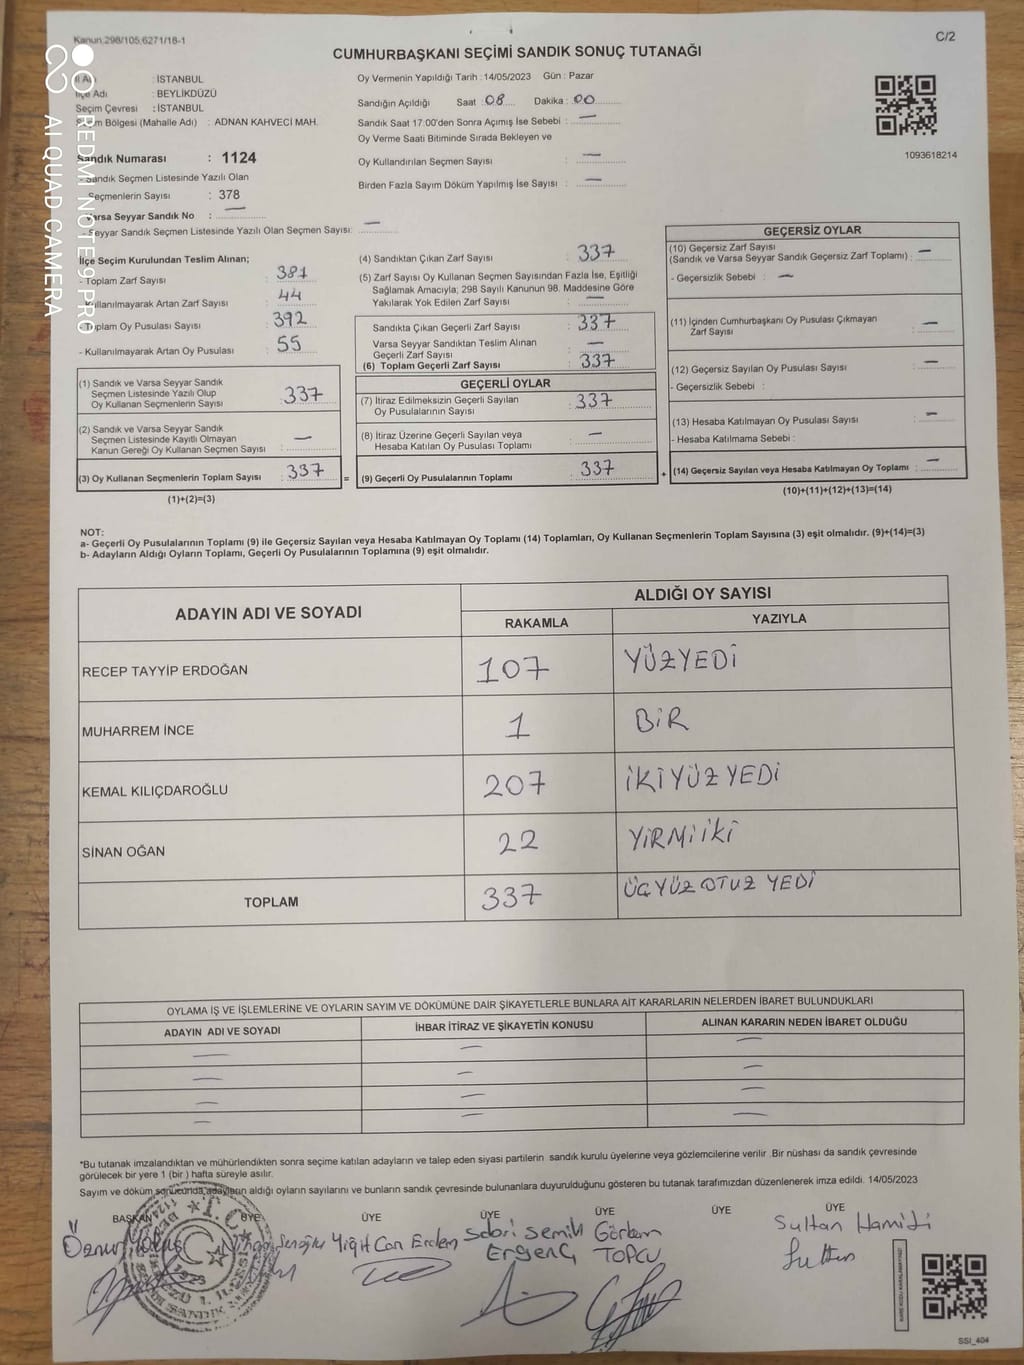 Kanun:298/105,6271/18-1
C/2
CUMHURBAŞKANI SEÇİMİ SANDIK SONUÇ TUTANAĞI
İl Adı : İSTANBUL
İlçe Adı : BEYLİKDÜZÜ
Seçim Çevresi : İSTANBUL
Seçim Bölgesi (Mahalle Adı) : ADNAN KAHVECİ MAH.
Sandık Numarası : 1124
- Sandık Seçmen Listesinde Yazılı Olan
Seçmenlerin Sayısı : 378
- Varsa Seyyar Sandık No : —
- Seyyar Sandık Seçmen Listesinde Yazılı Olan Seçmen Sayısı: —
Oy Vermenin Yapıldığı Tarih : 14/05/2023 Gün : Pazar
Sandığın Açıldığı Saat : 08 Dakika : 00
Sandık Saat 17:00'den Sonra Açımış İse Sebebi : —
Oy Verme Saati Bitiminde Sırada Bekleyen ve
Oy Kullandırılan Seçmen Sayısı : —
Birden Fazla Sayım Döküm Yapılmış İse Sayısı : —
1093618214
REDMI NOTE 9 PRO
AI QUAD CAMERA
İlçe Seçim Kurulundan Teslim Alınan;
- Toplam Zarf Sayısı : 381
- Kullanılmayarak Artan Zarf Sayısı : 44
- Toplam Oy Pusulası Sayısı : 392
- Kullanılmayarak Artan Oy Pusulası : 55
(1) Sandık ve Varsa Seyyar Sandık
Seçmen Listesinde Yazılı Olup
Oy Kullanan Seçmenlerin Sayısı : 337
(2) Sandık ve Varsa Seyyar Sandık
Seçmen Listesinde Kayıtlı Olmayan
Kanun Gereği Oy Kullanan Seçmen Sayısı : —
(3) Oy Kullanan Seçmenlerin Toplam Sayısı : 337 =
(1)+(2)=(3)
(4) Sandıktan Çıkan Zarf Sayısı : 337
(5) Zarf Sayısı Oy Kullanan Seçmen Sayısından Fazla İse, Eşitliği
Sağlamak Amacıyla; 298 Sayılı Kanunun 98. Maddesine Göre
Yakılarak Yok Edilen Zarf Sayısı : —
Sandıkta Çıkan Geçerli Zarf Sayısı : 337
Varsa Seyyar Sandıktan Teslim Alınan
Geçerli Zarf Sayısı : —
(6) Toplam Geçerli Zarf Sayısı : 337
GEÇERLİ OYLAR
(7) İtiraz Edilmeksizin Geçerli Sayılan
Oy Pusulalarının Sayısı : 337
(8) İtiraz Üzerine Geçerli Sayılan veya
Hesaba Katılan Oy Pusulası Toplamı : —
(9) Geçerli Oy Pusulalarının Toplamı : 337 +
GEÇERSİZ OYLAR
(10) Geçersiz Zarf Sayısı
(Sandık ve Varsa Seyyar Sandık Geçersiz Zarf Toplamı) : —
- Geçersizlik Sebebi : —
(11) İçinden Cumhurbaşkanı Oy Pusulası Çıkmayan
Zarf Sayısı : —
(12) Geçersiz Sayılan Oy Pusulası Sayısı : —
- Geçersizlik Sebebi :
(13) Hesaba Katılmayan Oy Pusulası Sayısı : —
- Hesaba Katılmama Sebebi :
(14) Geçersiz Sayılan veya Hesaba Katılmayan Oy Toplamı : —
(10)+(11)+(12)+(13)=(14)
NOT:
a- Geçerli Oy Pusulalarının Toplamı (9) ile Geçersiz Sayılan veya Hesaba Katılmayan Oy Toplamı (14) Toplamları, Oy Kullanan Seçmenlerin Toplam Sayısına (3) eşit olmalıdır. (9)+(14)=(3)
b- Adayların Aldığı Oyların Toplamı, Geçerli Oy Pusulalarının Toplamına (9) eşit olmalıdır.
ADAYIN ADI VE SOYADI ALDIĞI OY SAYISI
RAKAMLA YAZIYLA
RECEP TAYYİP ERDOĞAN 107 YÜZYEDİ
MUHARREM İNCE 1 BİR
KEMAL KILIÇDAROĞLU 207 İKİYÜZ YEDİ
SİNAN OĞAN 22 YİRMİİKİ
TOPLAM 337 ÜÇYÜZ OTUZ YEDİ
OYLAMA İŞ VE İŞLEMLERİNE VE OYLARIN SAYIM VE DÖKÜMÜNE DAİR ŞİKAYETLERLE BUNLARA AİT KARARLARIN NELERDEN İBARET BULUNDUKLARI
ADAYIN ADI VE SOYADI İHBAR İTİRAZ VE ŞİKAYETİN KONUSU ALINAN KARARIN NEDEN İBARET OLDUĞU
— — —
— — —
— — —
— — —
*Bu tutanak imzalandıktan ve mühürlendikten sonra seçime katılan adayların ve talep eden siyasi partilerin sandık kurulu üyelerine veya gözlemcilerine verilir .Bir nüshası da sandık çevresinde
görülecek bir yere 1 (bir ) hafta süreyle asılır.
Sayım ve döküm sonucunda adayların aldığı oyların sayılarını ve bunların sandık çevresinde bulunanlara duyurulduğunu gösteren bu tutanak tarafımızdan düzenlenerek imza edildi. 14/05/2023
BAŞKAN ÜYE ÜYE ÜYE ÜYE ÜYE ÜYE
Öznur Yiğit Can Erdem Sabri Semih Görkem Sultan Hamidi
ERGENÇ TOPCU Sultan
T.C.
SSI_404